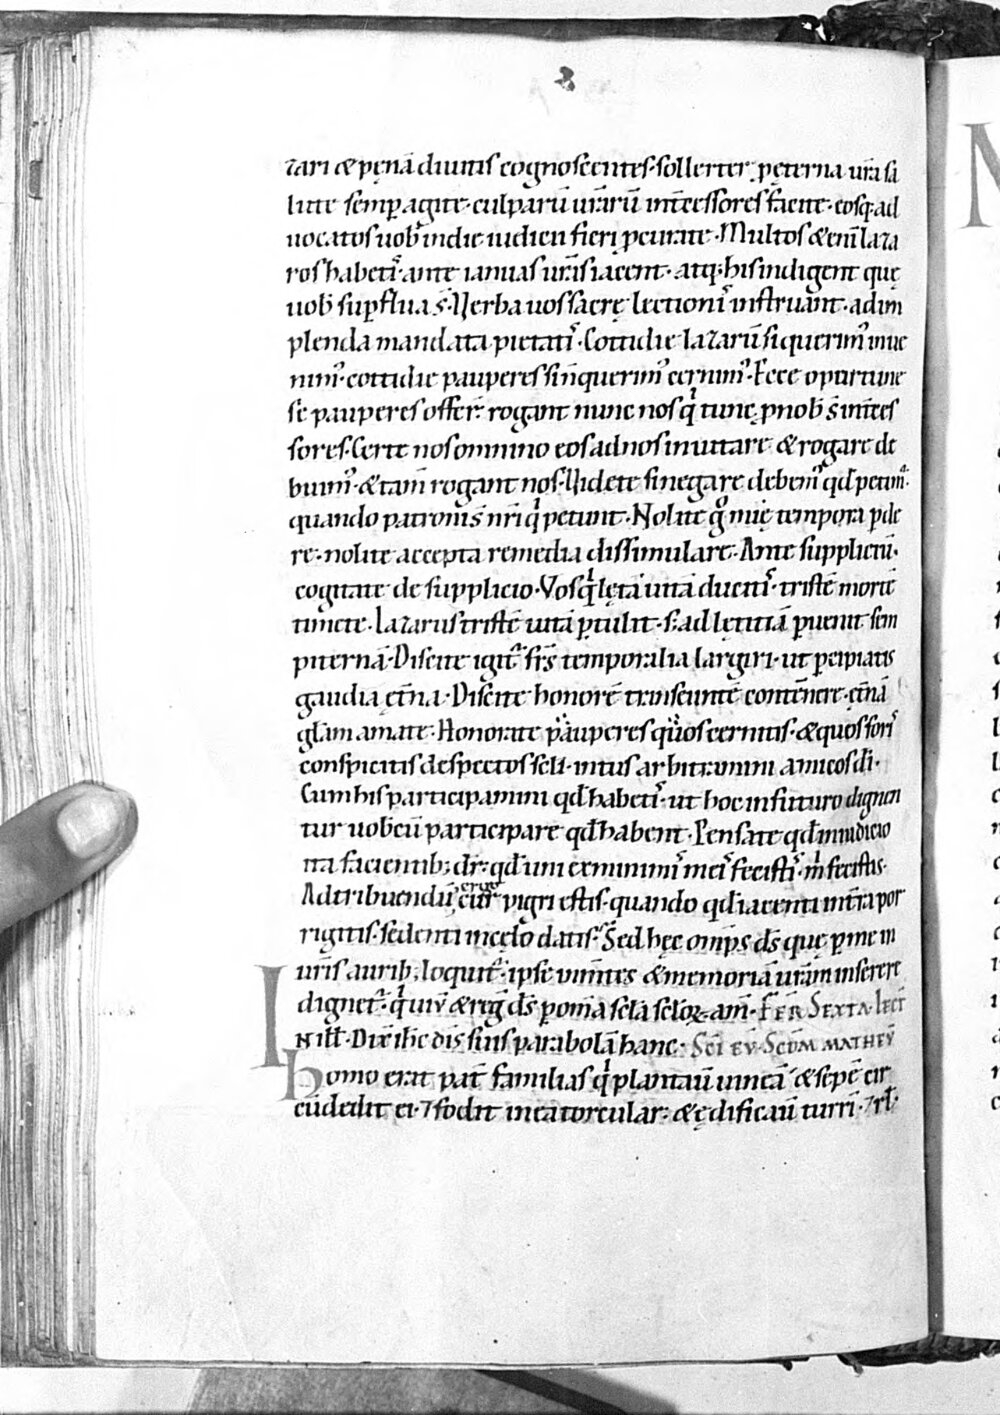 zari & pęnā diuitis cognoscentes· sollerter p̱ ęterna ur̄a sa
lute semp̱ agite· culparū ur̄arū int̄cessores facite· eosq· ad
uocatos uob̄ in die iudicii fieri p̱curate· Multos & eni̅ laza
ros habetis· ante ianuas ur̄as iacent· atq; his indigent quę
uob̄ sup̱flua s̄· Verba uos sacrę lectionis instruant· ad im
plenda mandata pietatis· Cottidie lazarū si querim᷒ inue
nim᷒· cottidie pauperes si n̄ querim᷒ cernim᷒· Ecce oportune
se pauperes offer̄· rogant nunc nos qi tunc p̱ nob̄ s̄ int̄ces
sores· Certe nos omnino eos ad nos inuitare & rogare de
buim᷒· & tam̄ rogant nos· Videte si negare debem᷒ qd̄ petim᷒·
quando patronis n̄ri qi petunt· Nolite gͦ mi̅ę tempora p̱de
re· nolite accepta remedia dissimulare· Ante suppliciū·
cogitate de supplicio· Vos qi lętā uitā ducitis· tristē mortē
timete· Lazarus tristē uitā p̱tulit· s; ad lętitiā p̱uenit sem
piternā· Discite igit᷒ fr̄s temporalia largiri· ut p̱cipiatis
gaudia ęt̄na· Discite honorē transeuntē contēnere· ęt̄nā
gl̄am amate· Honorate pauperes quos cernitis· & quos foris
conspicitis despectos sc̄li· intus arbitramini amicos di̅·
Cum his participamini qd̄ habetis· ut hoc in futuro dignen
tur uobcū participare qd̄ habent· Pensate qd̄ in iudicio
ita facientib; dr̄· qd̄ uni ex minimis meis fecistis· m̄ fecistis·
Ad tribuendū ergo cur pigri estis· quando qd̄ iacenti in t̄ra por
rigitis· sedenti in cęlo datis· Sed hęc omp̄s ds̄ quę p̱ me in
uris aurib; loquit᷒· ipse in m̄tes & memoriā ur̄am inserere
dignet᷒· qi uiu̅ & reg̅ ds̄ p̱ om̄a sc̄la sc̄loꝝ· am̄· FER̄ SEXTA· Lect̄
IN ill̄· Dix̄ ih̄c dis̄ suis parabolā hanc· SC̄I EU· SC̄DM MATHEV̄
Homo erat pat̄ familias qi plantauī uineā & sepē cir
cūdedit ei· 7 fodit in ea torcular· & ędificauī turri̅· 7 rl̄·